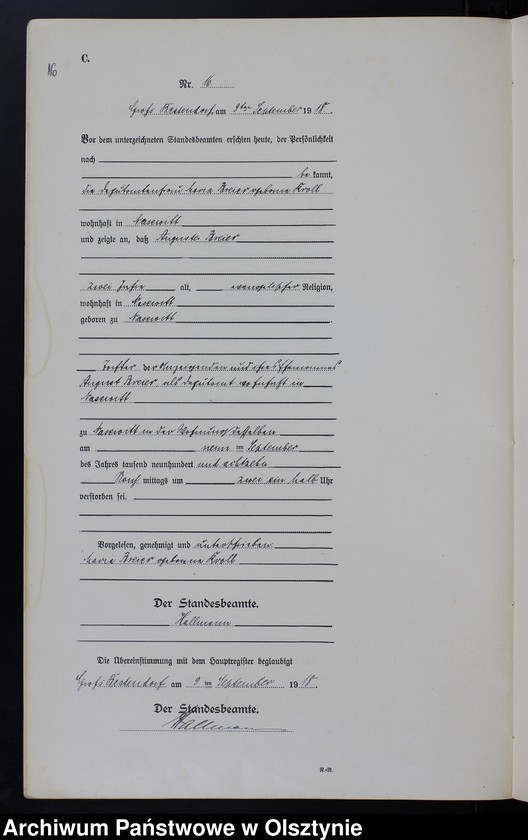 16
C.
Nr. 16
Groß Bestendorf, am 9ten September 1918.
Vor dem unterzeichneten Standesbeamten erschien heute, der Persönlichkeit
nach
be kannt,
die Deputantenfrau Maria Breier geborene Kroll
wohnhaft in Naserott
und zeigte an, daß Auguste Breier
zwei Jahre alt, evangelischer Religion,
wohnhaft in
geboren zu
Tochter der Anzeigenden und ihres Ehemannes
August Breier, als Deputant wohnhaft in
zu in der Wohnung desselben
am neun ten September
des Jahres tausend neunhundert und achtzehn
Nach mittags um zwei ein halb Uhr
verstorben sei.
Vorgelesen, genehmigt und unterschrieben
Maria Breier geborene Kroll
Der Standesbeamte.
Hallmann
Die Übereinstimmung mit dem Hauptregister beglaubigt
Groß Bestendorf am 9 ten September 1918.
Der Standesbeamte.
Hallmann
R.-R.
Archiwum Państwowe w Olsztynie